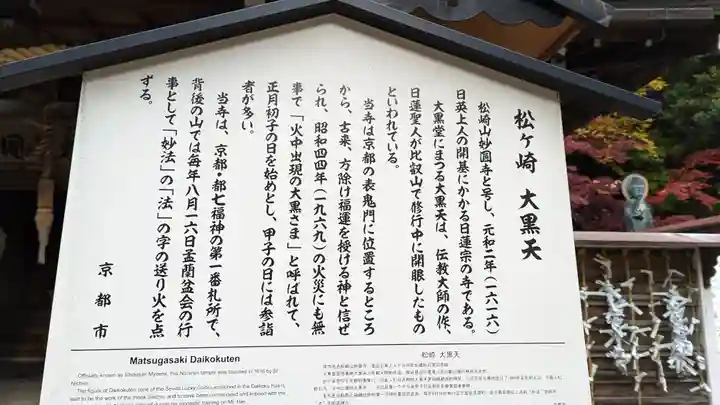 松ヶ崎 大黒天
松崎山妙圓寺と号し、元和二年（一六一六）
日英上人の開基にかかる日蓮宗の寺である。
大黒堂にまつる大黒天は、伝教大師の作、
日蓮聖人が比叡山で修行中に開眼したもの
といわれている。
当寺は京都の表鬼門に位置するところ
から、古来、方除け福運を授ける神と信ぜ
られ、昭和四四年（一九六九）の火災にも無
事で「火中出現の大黒さま」と呼ばれて、
正月初子の日を始めとし、甲子の日には参詣
者が多い。
当寺は、京都・都七福神の第一番札所で、
背後の山では毎年八月一六日盂蘭盆会の行
事として「妙法」の「法」の字の送り火を点
ずる。
京都市
Matsugasaki Daikokuten
Officially known as Shokizan Myoenji, this Nichiren temple was founded in 1616 by St.
Nichiei.
The figure of Daikokuten (one of the Seven Lucky Gods) enshrined in the Daikoku Hall is
said to be the work of the monk Saicho, and to have been consecrated and imbued with the
松崎 大黒天